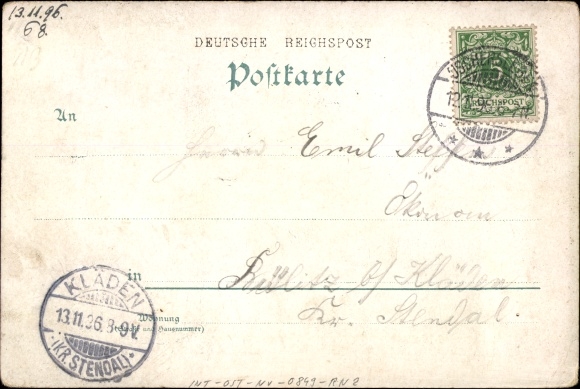 13.11.96
68.
DEUTSCHE REICHSPOST
Postkarte
REICHSPOST
An
Herrn Emil
Ökonom
in
b/ Kläden
Kr. Stendal.
Wohnung
(Straße und Hausnummer)
KLÄDEN
13.11.96.8-9V.
(KR. STENDAL)
INT-OST-NV-0849-RN2